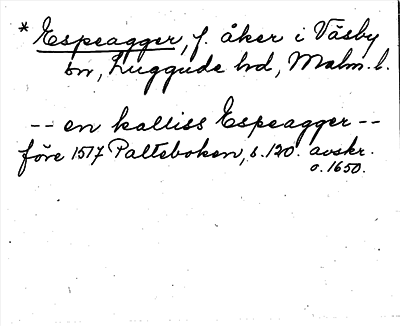 * Espeagger, f. åker i Väsby
sn, Luggude hd, Malm. l.
-- en kalliss Espeagger --
före 1517 Palteboken, s. 120. avskr.
o. 1650.